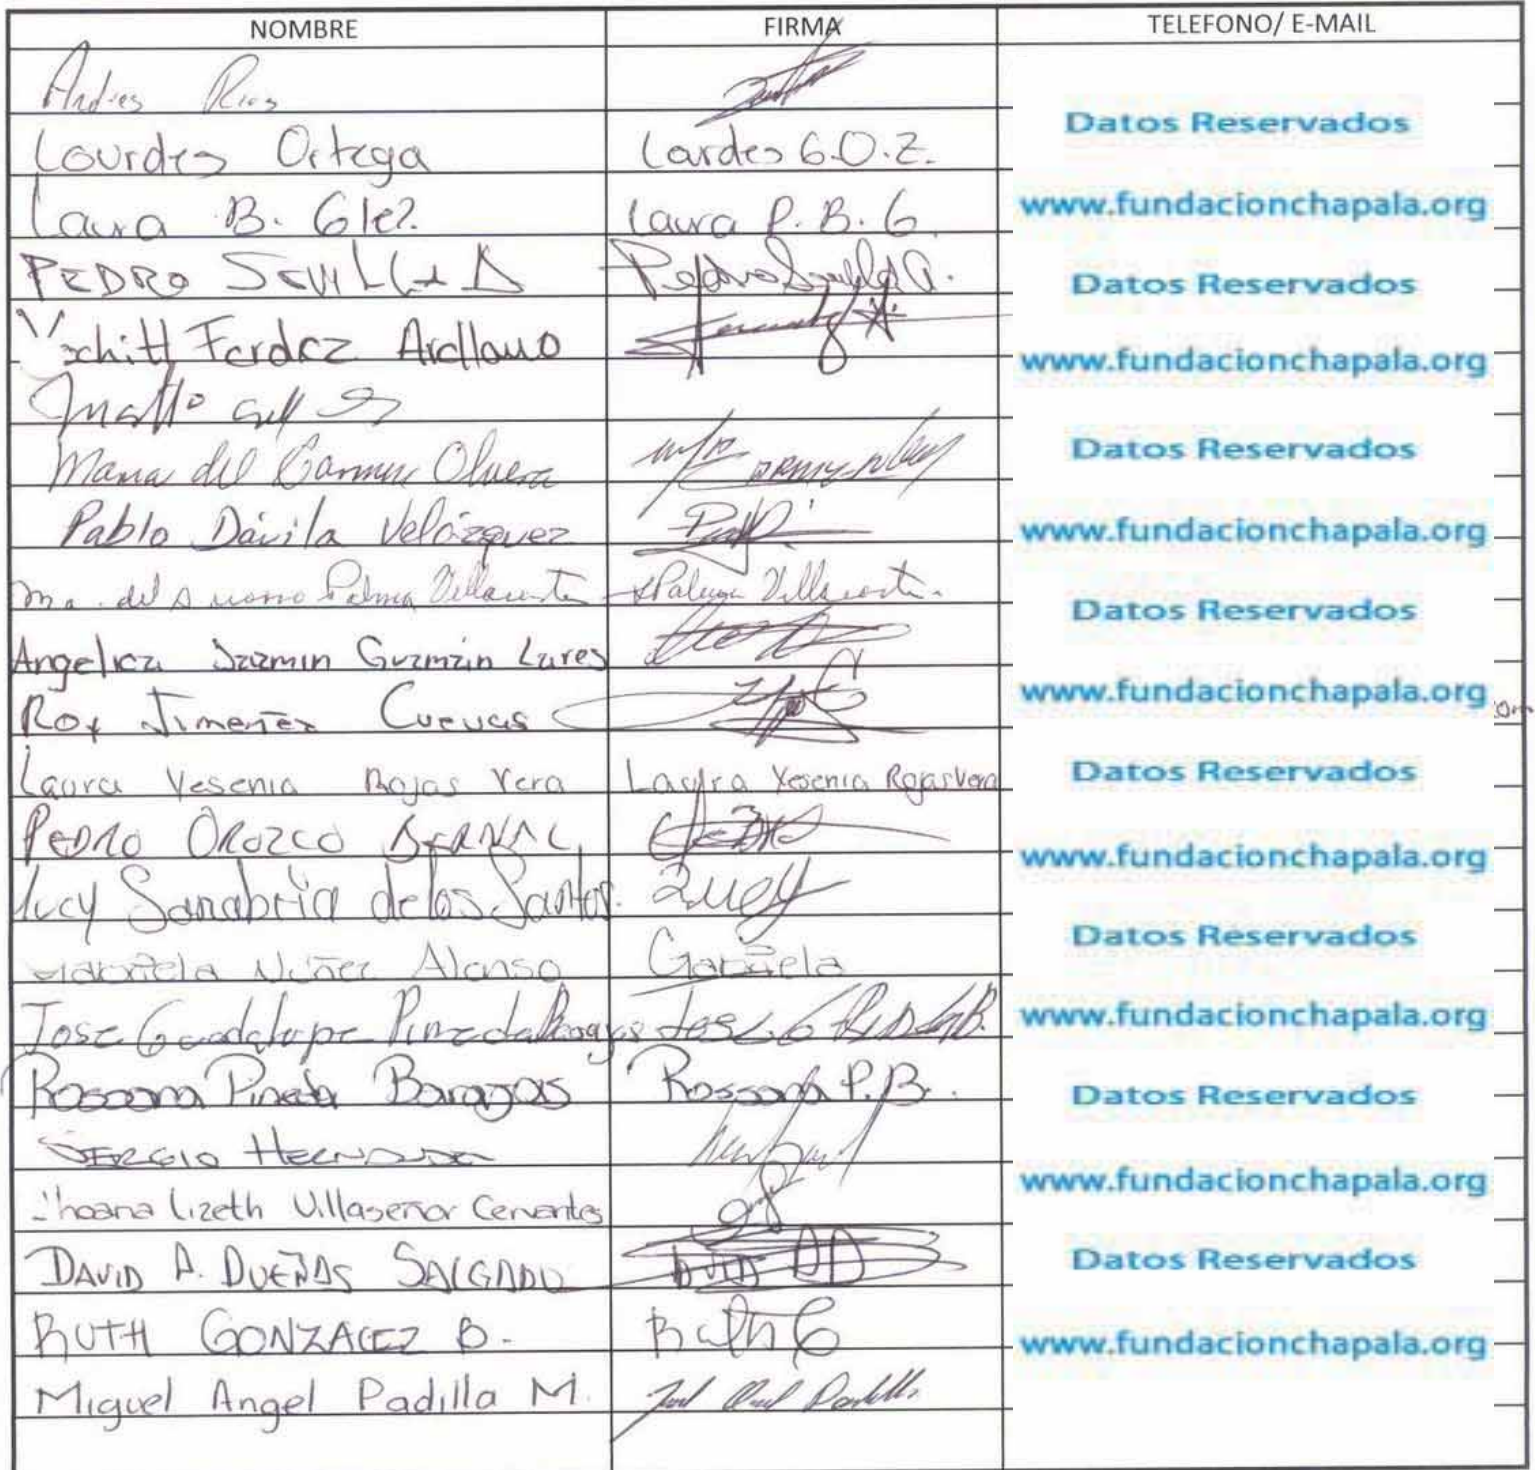 NOMBRE FIRMA TELEFONO/ E-MAIL
Andres Rios
Datos Reservados
Lourdes Ortega Lordes G.O.Z.
Laura B. Glez. Laura P. B. G. www.fundacionchapala.org
PEDRO SEVILLA A Datos Reservados
Xochitl Ferdez Arellano www.fundacionchapala.org
Maria del Carmen Olvera Datos Reservados
Pablo Dávila Velázquez www.fundacionchapala.org
Ma. del Palma Villa Datos Reservados
Angelica Jazmin Guzmán Lares
Roy Jimenez Cuevas www.fundacionchapala.org
Laura Yesenia Rojas Vera Laura Yesenia Rojas Vera Datos Reservados
PEDRO OROZCO BERNAL www.fundacionchapala.org
Lucy Sanabria de los Santos. Lucy
Gabriela Núñez Alonso Gabriela Datos Reservados
Jose Guadalupe Pineda Barajas www.fundacionchapala.org
Rossana Pineda Barajas Rossana P.B. Datos Reservados
SERGIO HERNANDEZ
Lizeth Villaseñor Cervantes www.fundacionchapala.org
DAVID A. DUEÑAS SALGADO Datos Reservados
RUTH GONZALEZ B. Ruth G www.fundacionchapala.org
Miguel Angel Padilla M.